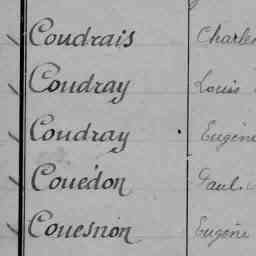 Coudrais Charles
Coudray Louis
Coudray Eugène
Couëdon Paul.
Couesnon Eugène